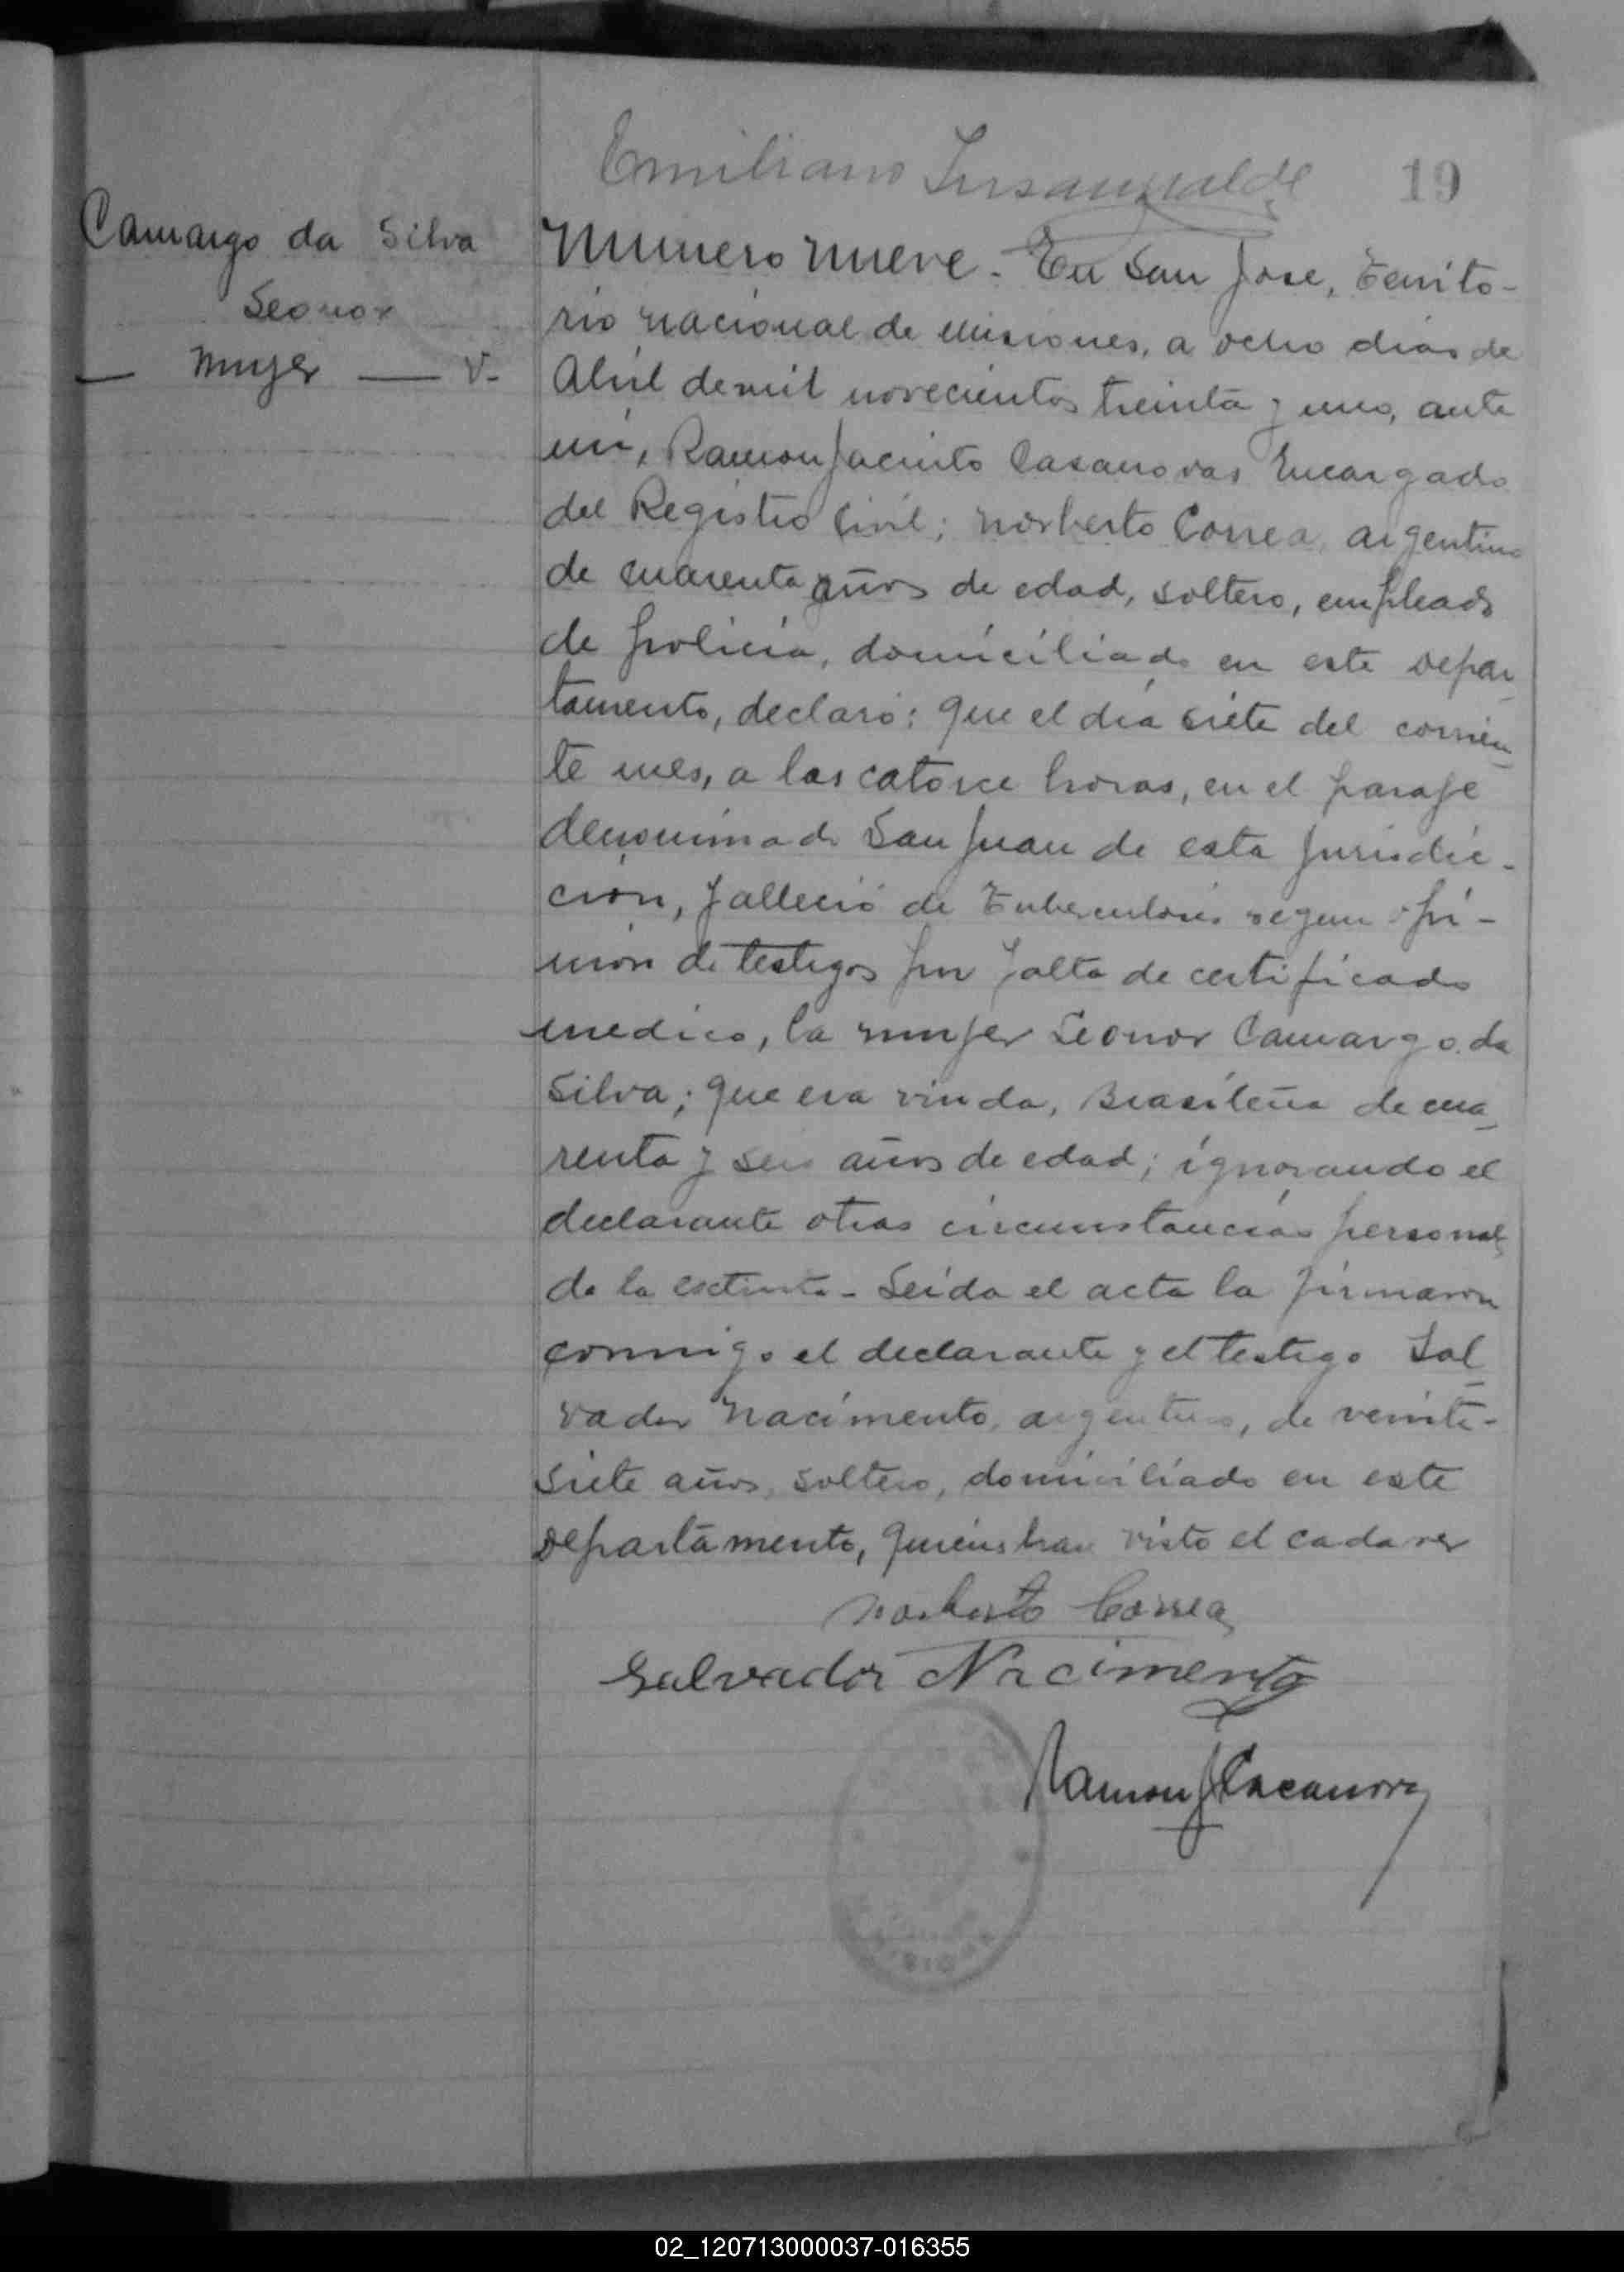 Emiliano
19
Camargo da Silva
Leonor
— Mujer — V.
Numero nueve. En San Jose, Territo-
rio nacional de Misiones, a ocho dias de
Abril de mil novecientos treinta y uno, ante
mi, Ramon Jacinto Casanovas Encargado
del Registro Civil; Norberto Correa, argentino
de cuarenta años de edad, soltero, empleado
de policia, domiciliado en este depar
tamento, declaró: Que el día siete del corrien
te mes, a las catorce horas, en el paraje
denominado San Juan de esta jurisdic-
ción, falleció de Tuberculosis segun opi-
nión de testigos por falta de certificado
medico, la mujer Leonor Camargo da
Silva; que era viuda, Brasileña de cua
renta y seis años de edad; ignorando el
declarante otras circunstancias personal
de la esctinta - Leida el acta la firmaron
conmigo el declarante y el testigo Sal
vador Nacimento, argentino, de veinte-
siete años, soltero, domiciliado en este
departamento, quienes han visto el cadaver
Norberto Correa
Salvador Nacimento
Ramon J Casanova
02_120713000037-016355